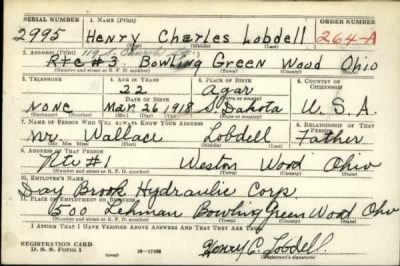 SERIAL NUMBER 1. NAME (Print) ORDER NUMBER
2995 Henry Charles Lobdell 264-A
(First) (Middle) (Last)
2. ADDRESS (Print)
Rte #3 Bowling Green Wood Ohio
(Number and street or R. F. D. number) (Town) (County) (State)
3. TELEPHONE 4. AGE IN YEARS 5. PLACE OF BIRTH 6. COUNTRY OF CITIZENSHIP
22 Agar
DATE OF BIRTH (Town or county)
None Mar. 26 1918 S. Dakota U.S.A.
(Mo.) (Day) (Yr.) (State or country)
7. NAME OF PERSON WHO WILL ALWAYS KNOW YOUR ADDRESS 8. RELATIONSHIP OF THAT PERSON
Mr. Wallace Lobdell Father
(Mr., Mrs., Miss) (First) (Middle) (Last)
9. ADDRESS OF THAT PERSON
Rte #1 Weston Wood Ohio
(Number and street or R. F. D. number) (Town) (County) (State)
10. EMPLOYER'S NAME
Day Brook Hydraulic Corp.
11. PLACE OF EMPLOYMENT OR BUSINESS
500 Lehman Bowling Green Wood Ohio
(Number and street or R. F. D. number) (Town) (County) (State)
I AFFIRM THAT I HAVE VERIFIED ABOVE ANSWERS AND THAT THEY ARE TRUE.
REGISTRATION CARD
D. S. S. Form 1 16-17105 Henry C. Lobdell
(Registrant's signature)